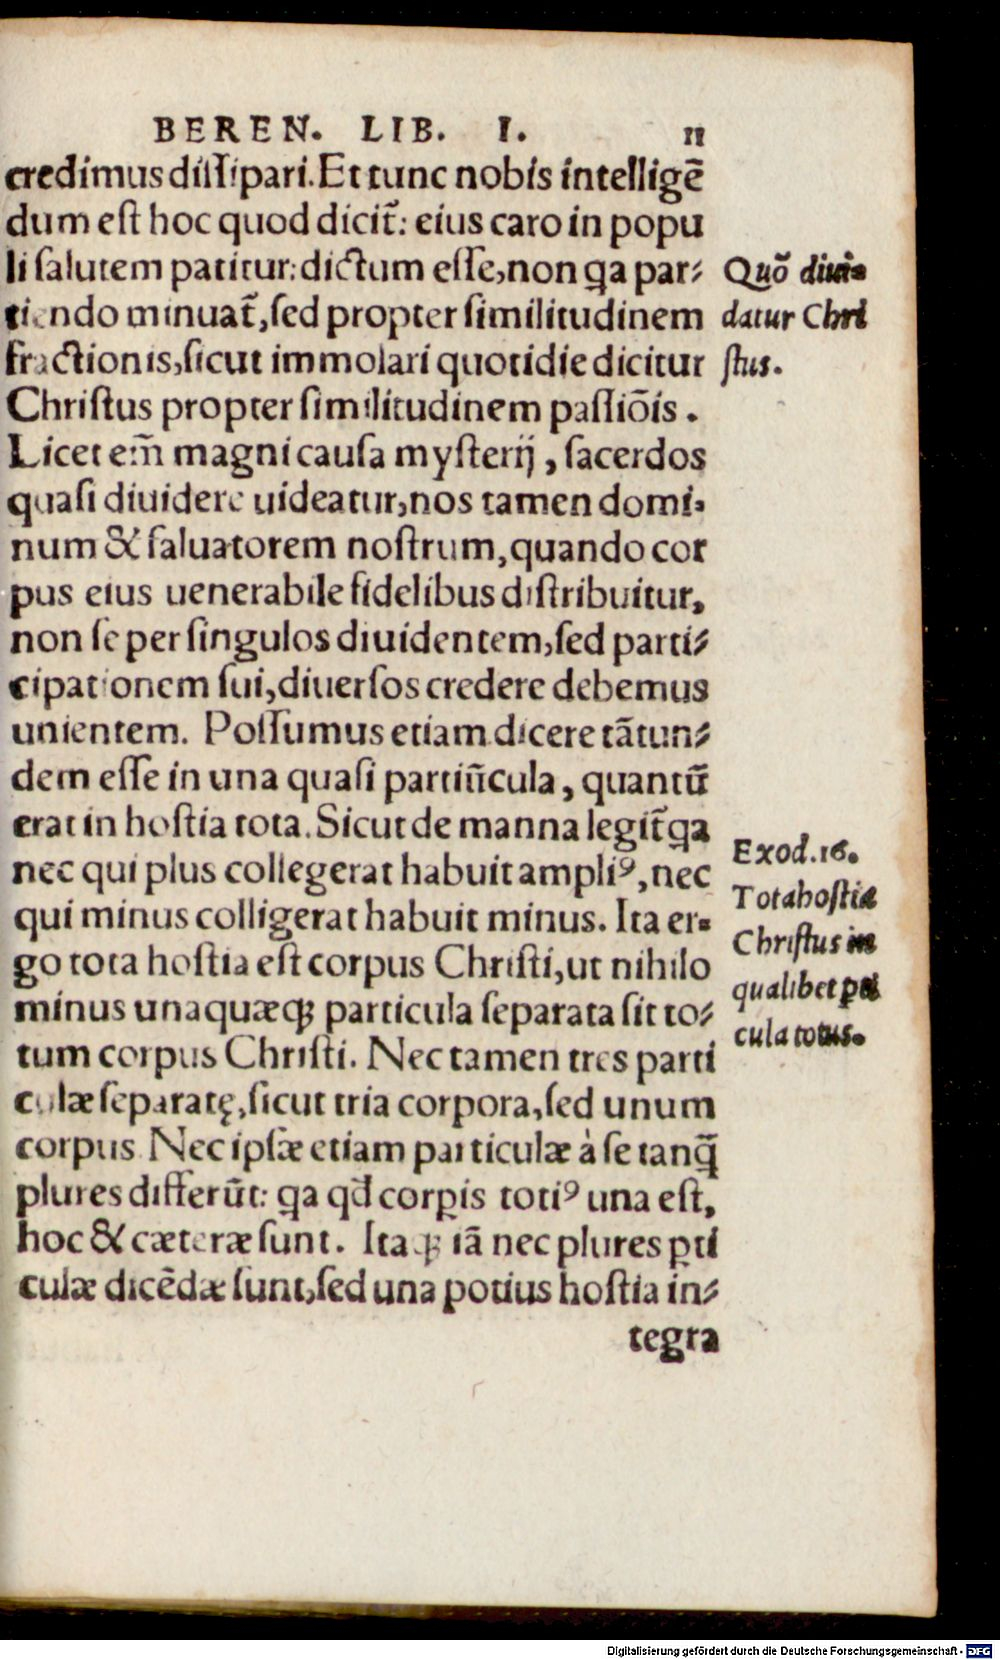 BEREN. LIB. I. 11
credimus dissipari. Et tunc nobis intelligē
dum est hoc quod dicit̃: eius caro in popu
li salutem patitur: dictum esse, non ꝗa par-
tiendo minuat̃, sed propter similitudinem
fractionis, sicut immolari quotidie dicitur
Christus propter similitudinem passiōis.
Licet em̃ magni causa mysterij, sacerdos
quasi diuidere uideatur, nos tamen domi-
num & saluatorem nostrum, quando cor
pus eius uenerabile fidelibus distribuitur,
non se per singulos diuidentem, sed parti-
cipationem sui, diuersos credere debemus
unientem. Possumus etiam dicere tātun-
dem esse in una quasi partiūcula, quantū
erat in hostia tota. Sicut de manna legit̃ ꝗa
nec qui plus collegerat habuit ampliꝰ, nec
qui minus colligerat habuit minus. Ita er-
go tota hostia est corpus Christi, ut nihilo
minus unaquæqꝫ particula separata sit to-
tum corpus Christi. Nec tamen tres parti
culæ separatę, sicut tria corpora, sed unum
corpus. Nec ipsæ etiam particulæ à se tanq̃
plures differūt: ꝗa qđ corꝑis totiꝰ una est,
hoc & cæteræ sunt. Itaqꝫ iā nec plures ꝑti
culæ dicēdæ sunt, sed una potius hostia in-
tegra
Quō diui-
datur Chri
stus.
Exod. 16.
Tota hostia
Christus in
qualibet ꝑti
cula totus.
Digitalisierung gefördert durch die Deutsche Forschungsgemeinschaft - DFG